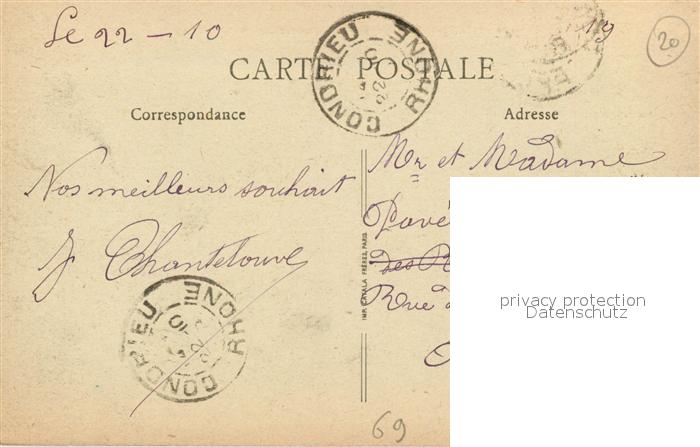 Le 22 - 10
19
20
CARTE POSTALE
CONDRIEU
RHONE
Correspondance
Adresse
Nos meilleurs souhait
J Chantelouve
Mr et Madame
Pavé
des R
Rue d
IMP. CATALA FRÈRES, PARIS
privacy protection
Datenschutz
CONDRIEU
RHONE
69